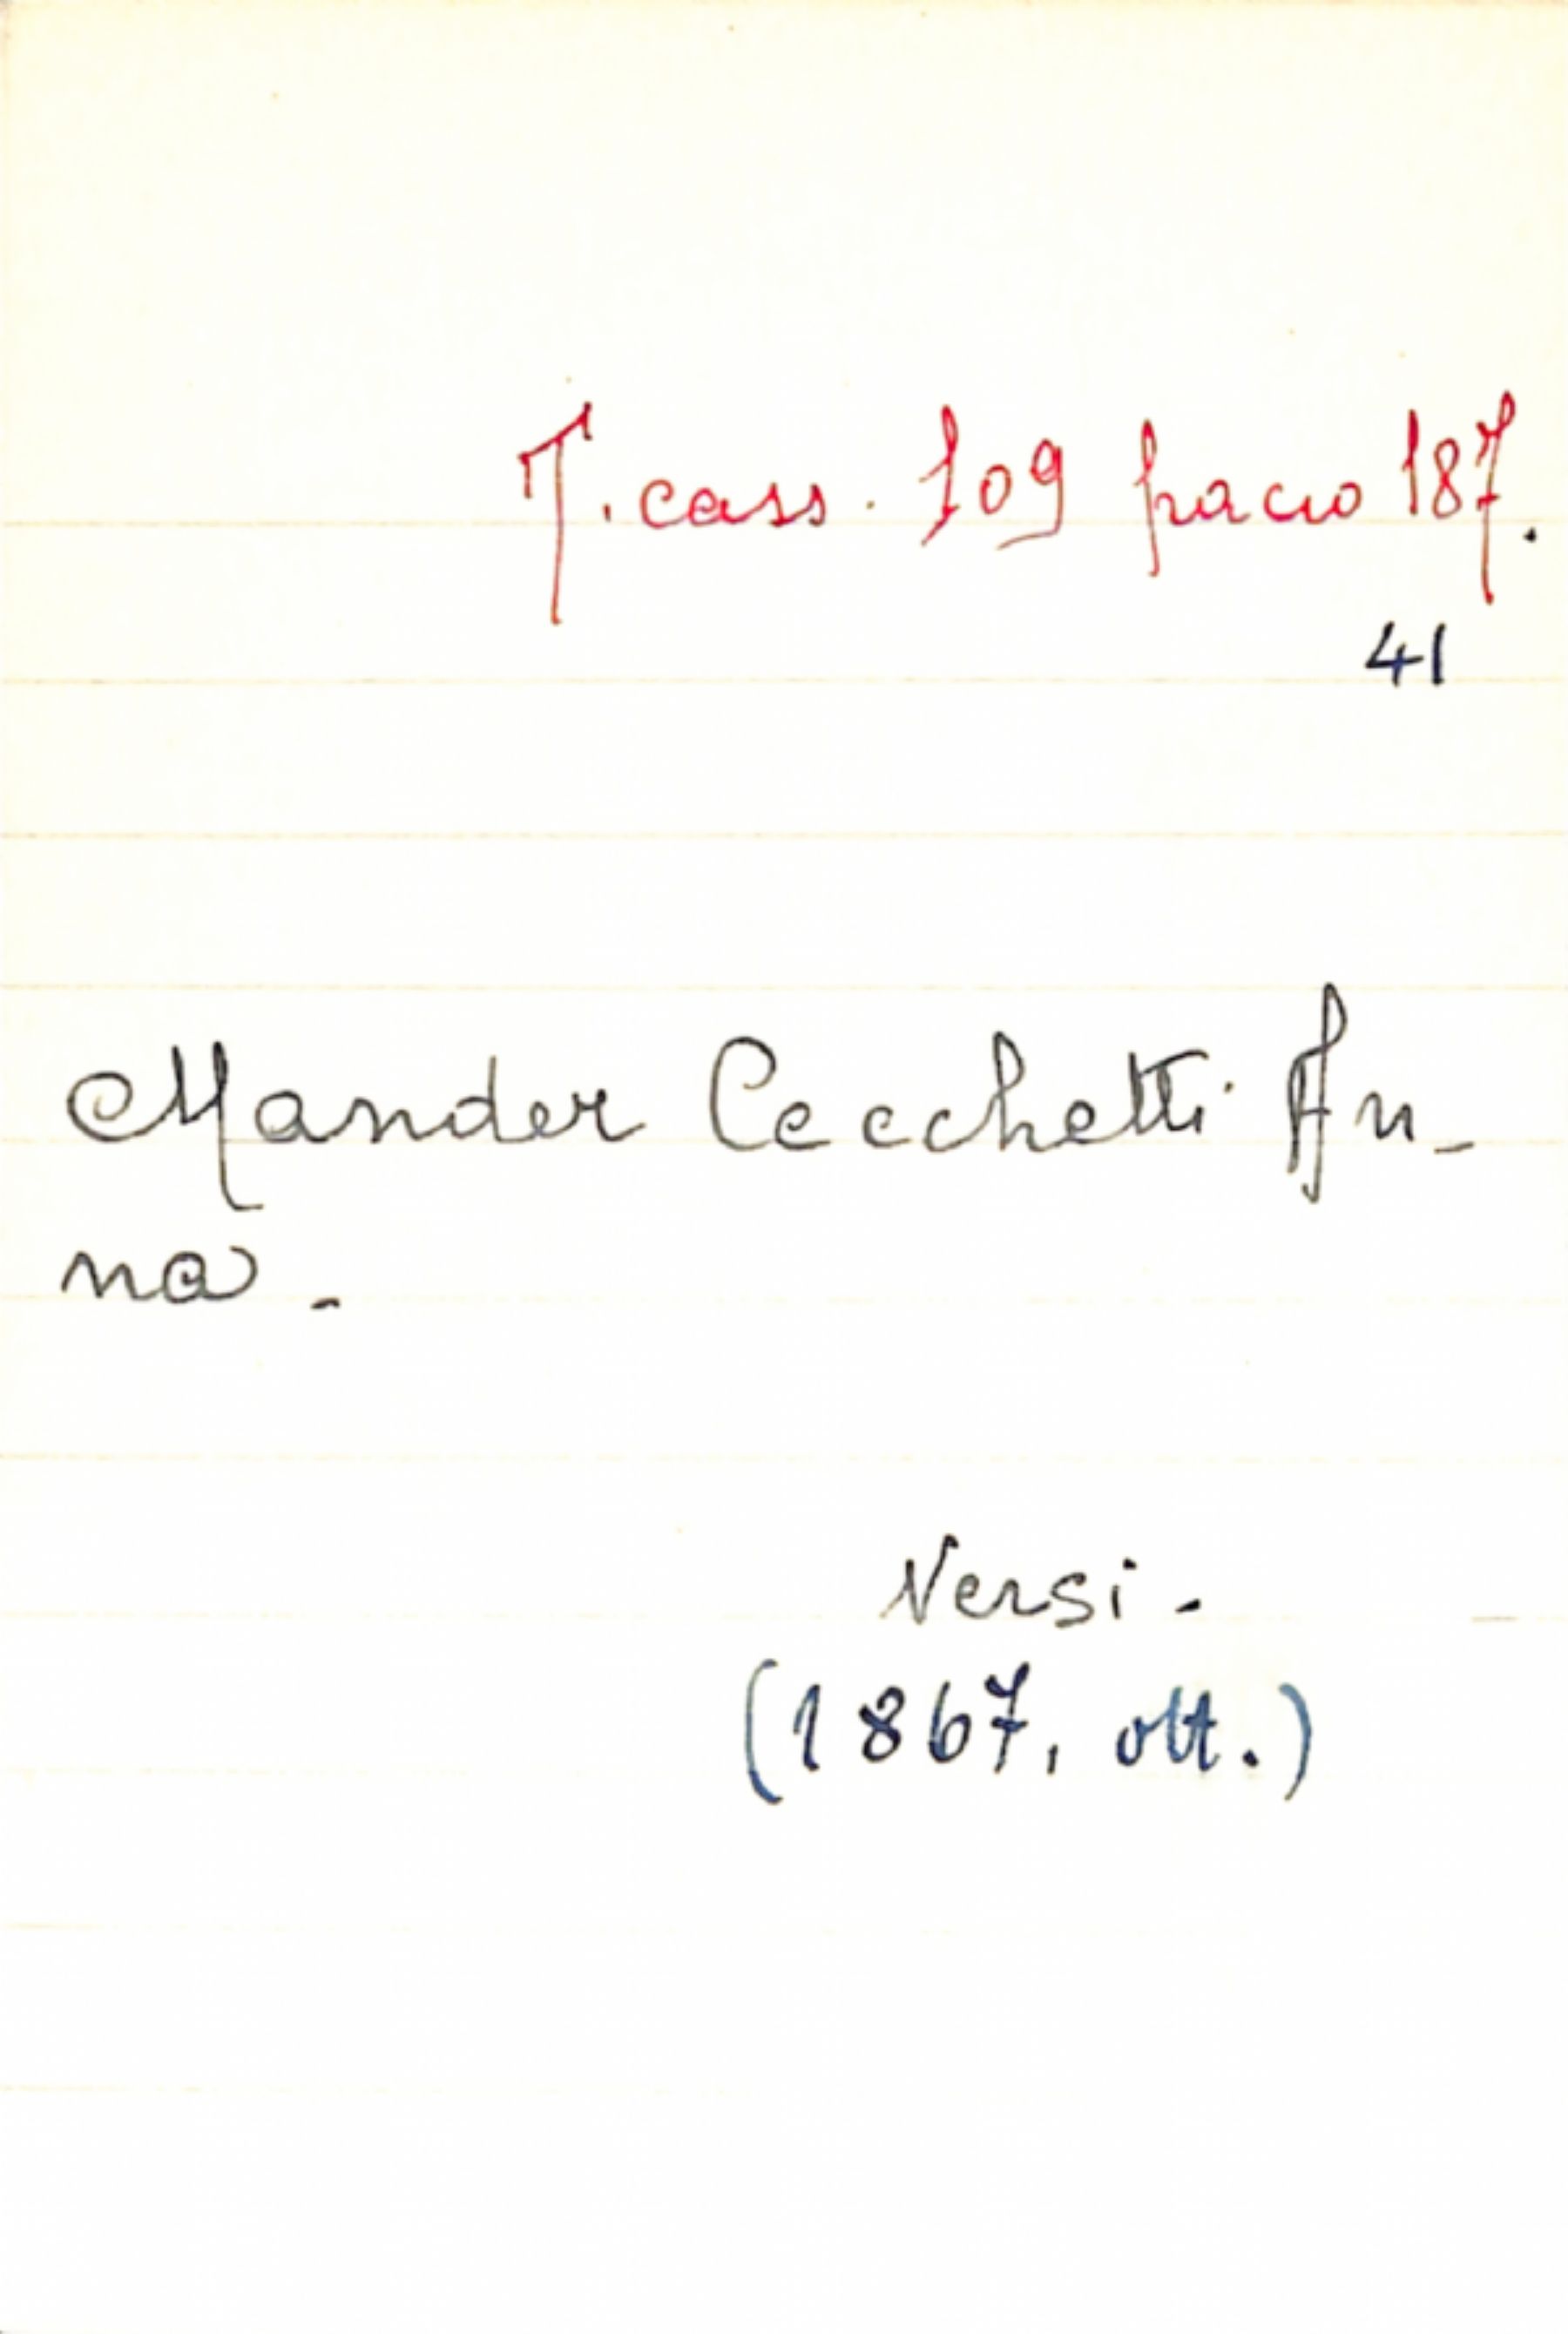 T. cass. 109 pacco 187.
41
Mander Cecchetti An-
na.
Versi.
(1867, ott.)